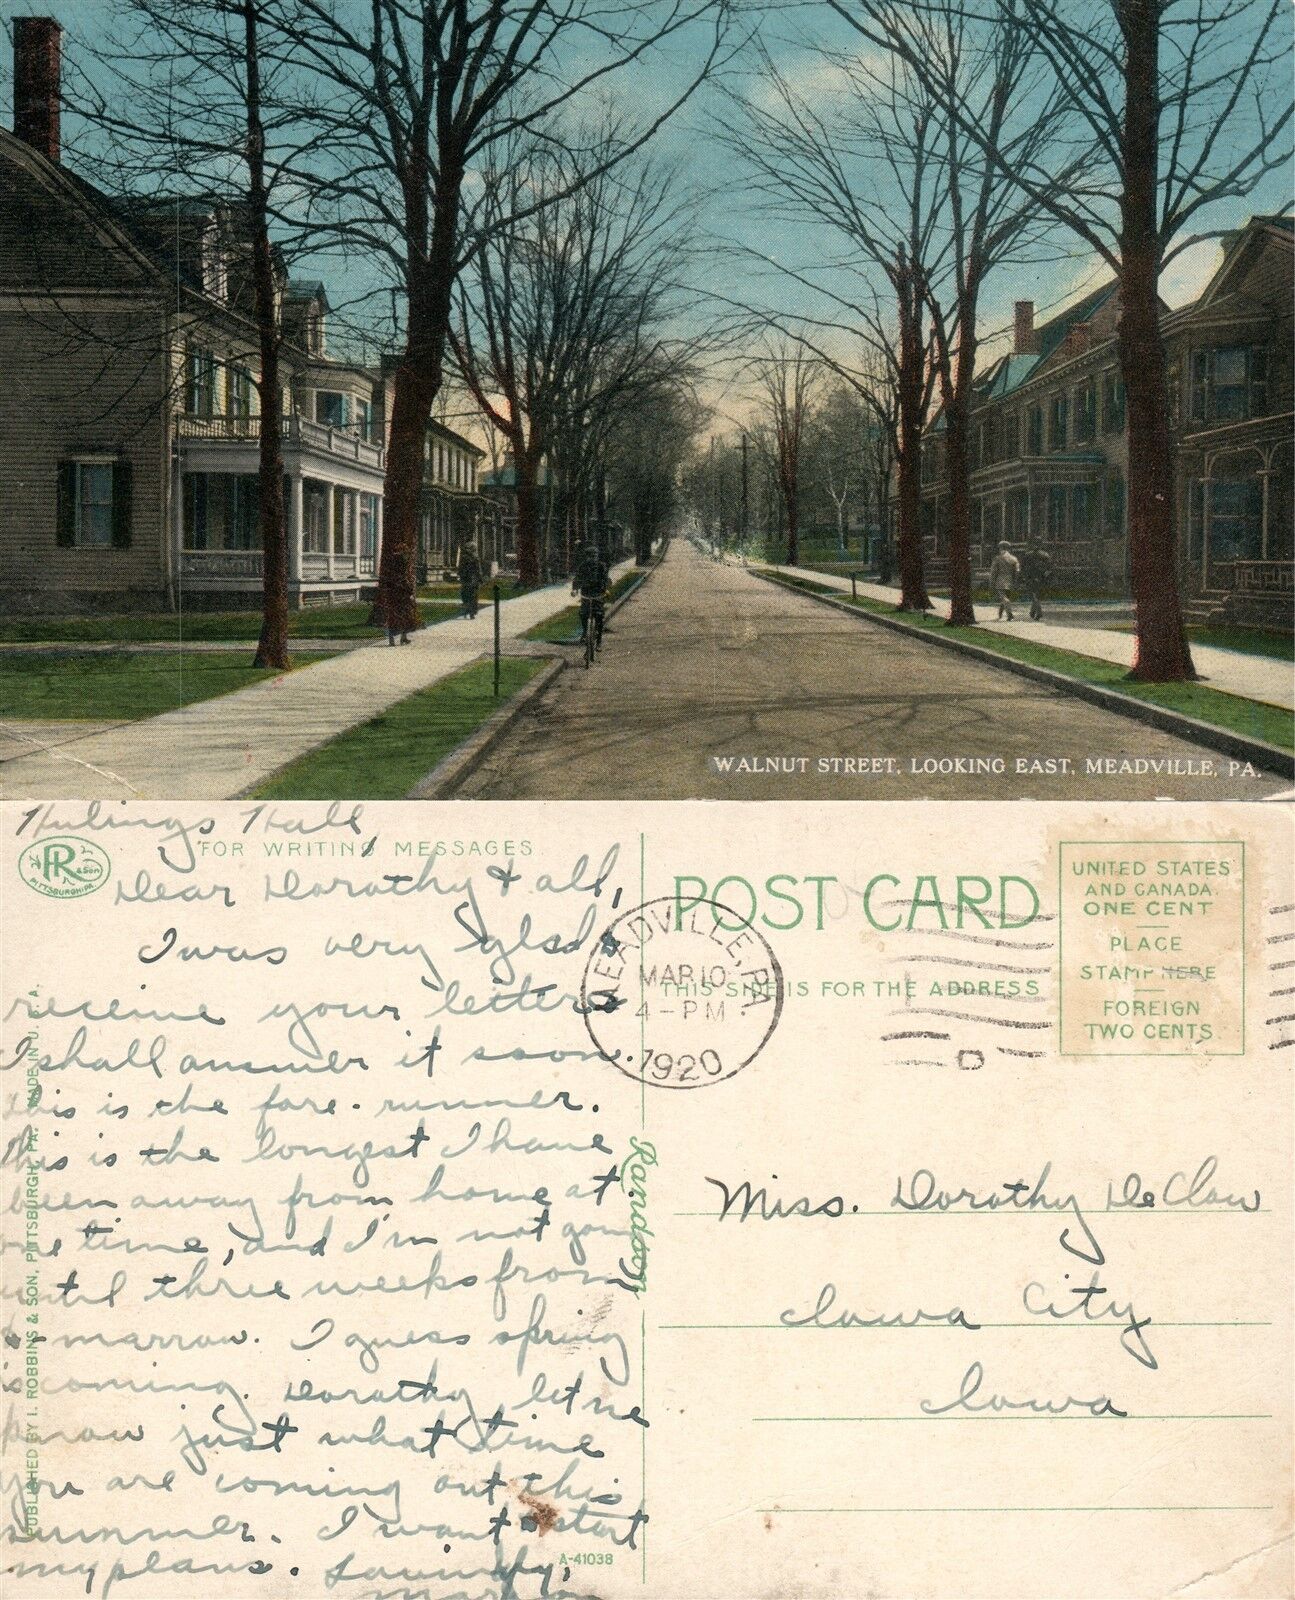 WALNUT STREET, LOOKING EAST, MEADVILLE, PA.
Hulings Hall,
FOR WRITING MESSAGES
R & Son
PITTSBURGH PA.
Dear Dorothy & all,
I was very glad to
receive your letters
I shall answer it soon.
this is the fore-runner.
This is the longest I have
been away from home at
one time, and I'm not going
until three weeks from
to-morrow. I guess spring
is coming. Dorothy let me
know just what time
you are coming out this
summer. I want to start
my plans. Lovingly,
Marion
PUBLISHED BY I. ROBBINS & SON, PITTSBURGH, PA. MADE IN U. S. A.
A-41038
Pandoxy
POST CARD
THIS SIDE IS FOR THE ADDRESS
MEADVILLE, PA.
MAR 10
4-PM
1920
UNITED STATES
AND CANADA
ONE CENT
PLACE
STAMP HERE
FOREIGN
TWO CENTS
Miss. Dorothy DeClow
Iowa City
Iowa